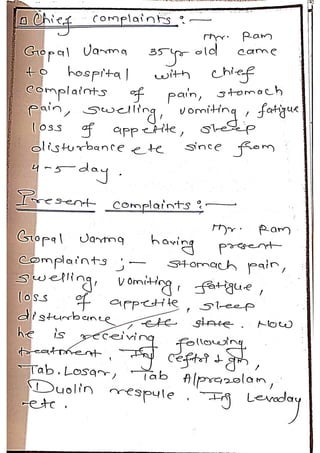 Chief complaints :-
Mr. Ram
Gopal Varma 35yr old came
to hospital with chief
complaints of pain, stomach
pain, swelling, vomiting, fatigue
loss of appetite, sleep
disturbance etc since from
4-5 day.
Present complaints :-
Mr. Ram
Gopal Varma having present
complaints ;- stomach pain,
swelling, vomiting, fatigue,
loss of appetite, sleep
disturbance, etc since. Now
he is receiving following
treatment. Inj Ceftri 1 gm,
Tab. Losar, Tab Alprazolam,
Duolin respule. Inj Levoday
etc.